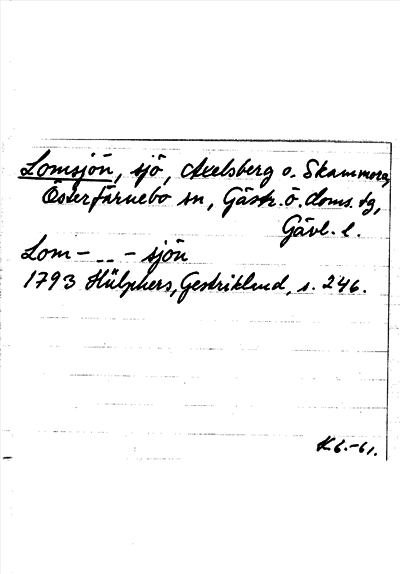 Lomsjön, sjö, Axelsberg o. Skammora,
Österfärnebo sn, Gästr. ö. doms. tg,
Gävl. l.
Lom - .. - sjön
1793 Hülphers, Gestrikland, s. 246.
K6.-61.